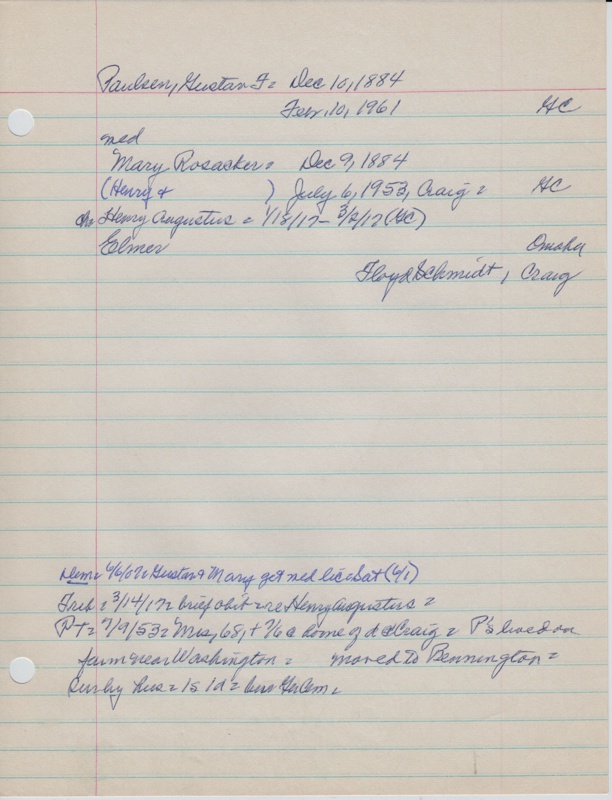 Paulsen, Gustav F = Dec 10, 1884
Feb, 10, 1961 GC
med
Mary Rosacker = Dec 9, 1884
(Henry + ) July 6, 1953, Craig = GC
ch = Henry Augustus = 1/18/17 - 3/2/17 (GC)
Elmer Omaha
Floyd Schmidt, Craig
Dem = 6/6/07 = Gustav + Mary get med lic = Sat (6/1)
Trib = 3/14/17 = brief obit = re Henry Augustus =
PT = 7/9/53 = Mrs, 68, + 7/6 @ home of d @ Craig = P's lived on
farm near Washington = moved to Bennington =
Surby hus = 1s 1d = bur Ger Cem =